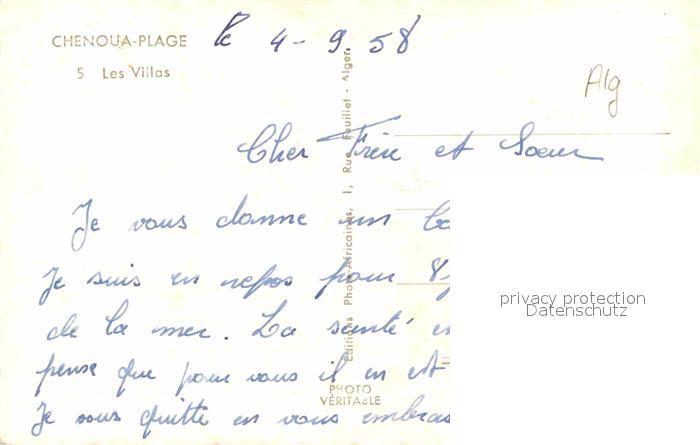 CHENOUA-PLAGE
5 Les Villas
le 4-9.58
Alg
Cher Frère et Soeur
Je vous donne un
Je suis en repos pour 8
de la mer. La santé
pense que pour vous il en est
Je vous quitte en vous embras
Editions Photo-Africaines, 1, Rue Feuillet - Alger.
PHOTO
VÉRITABLE
privacy protection
Datenschutz